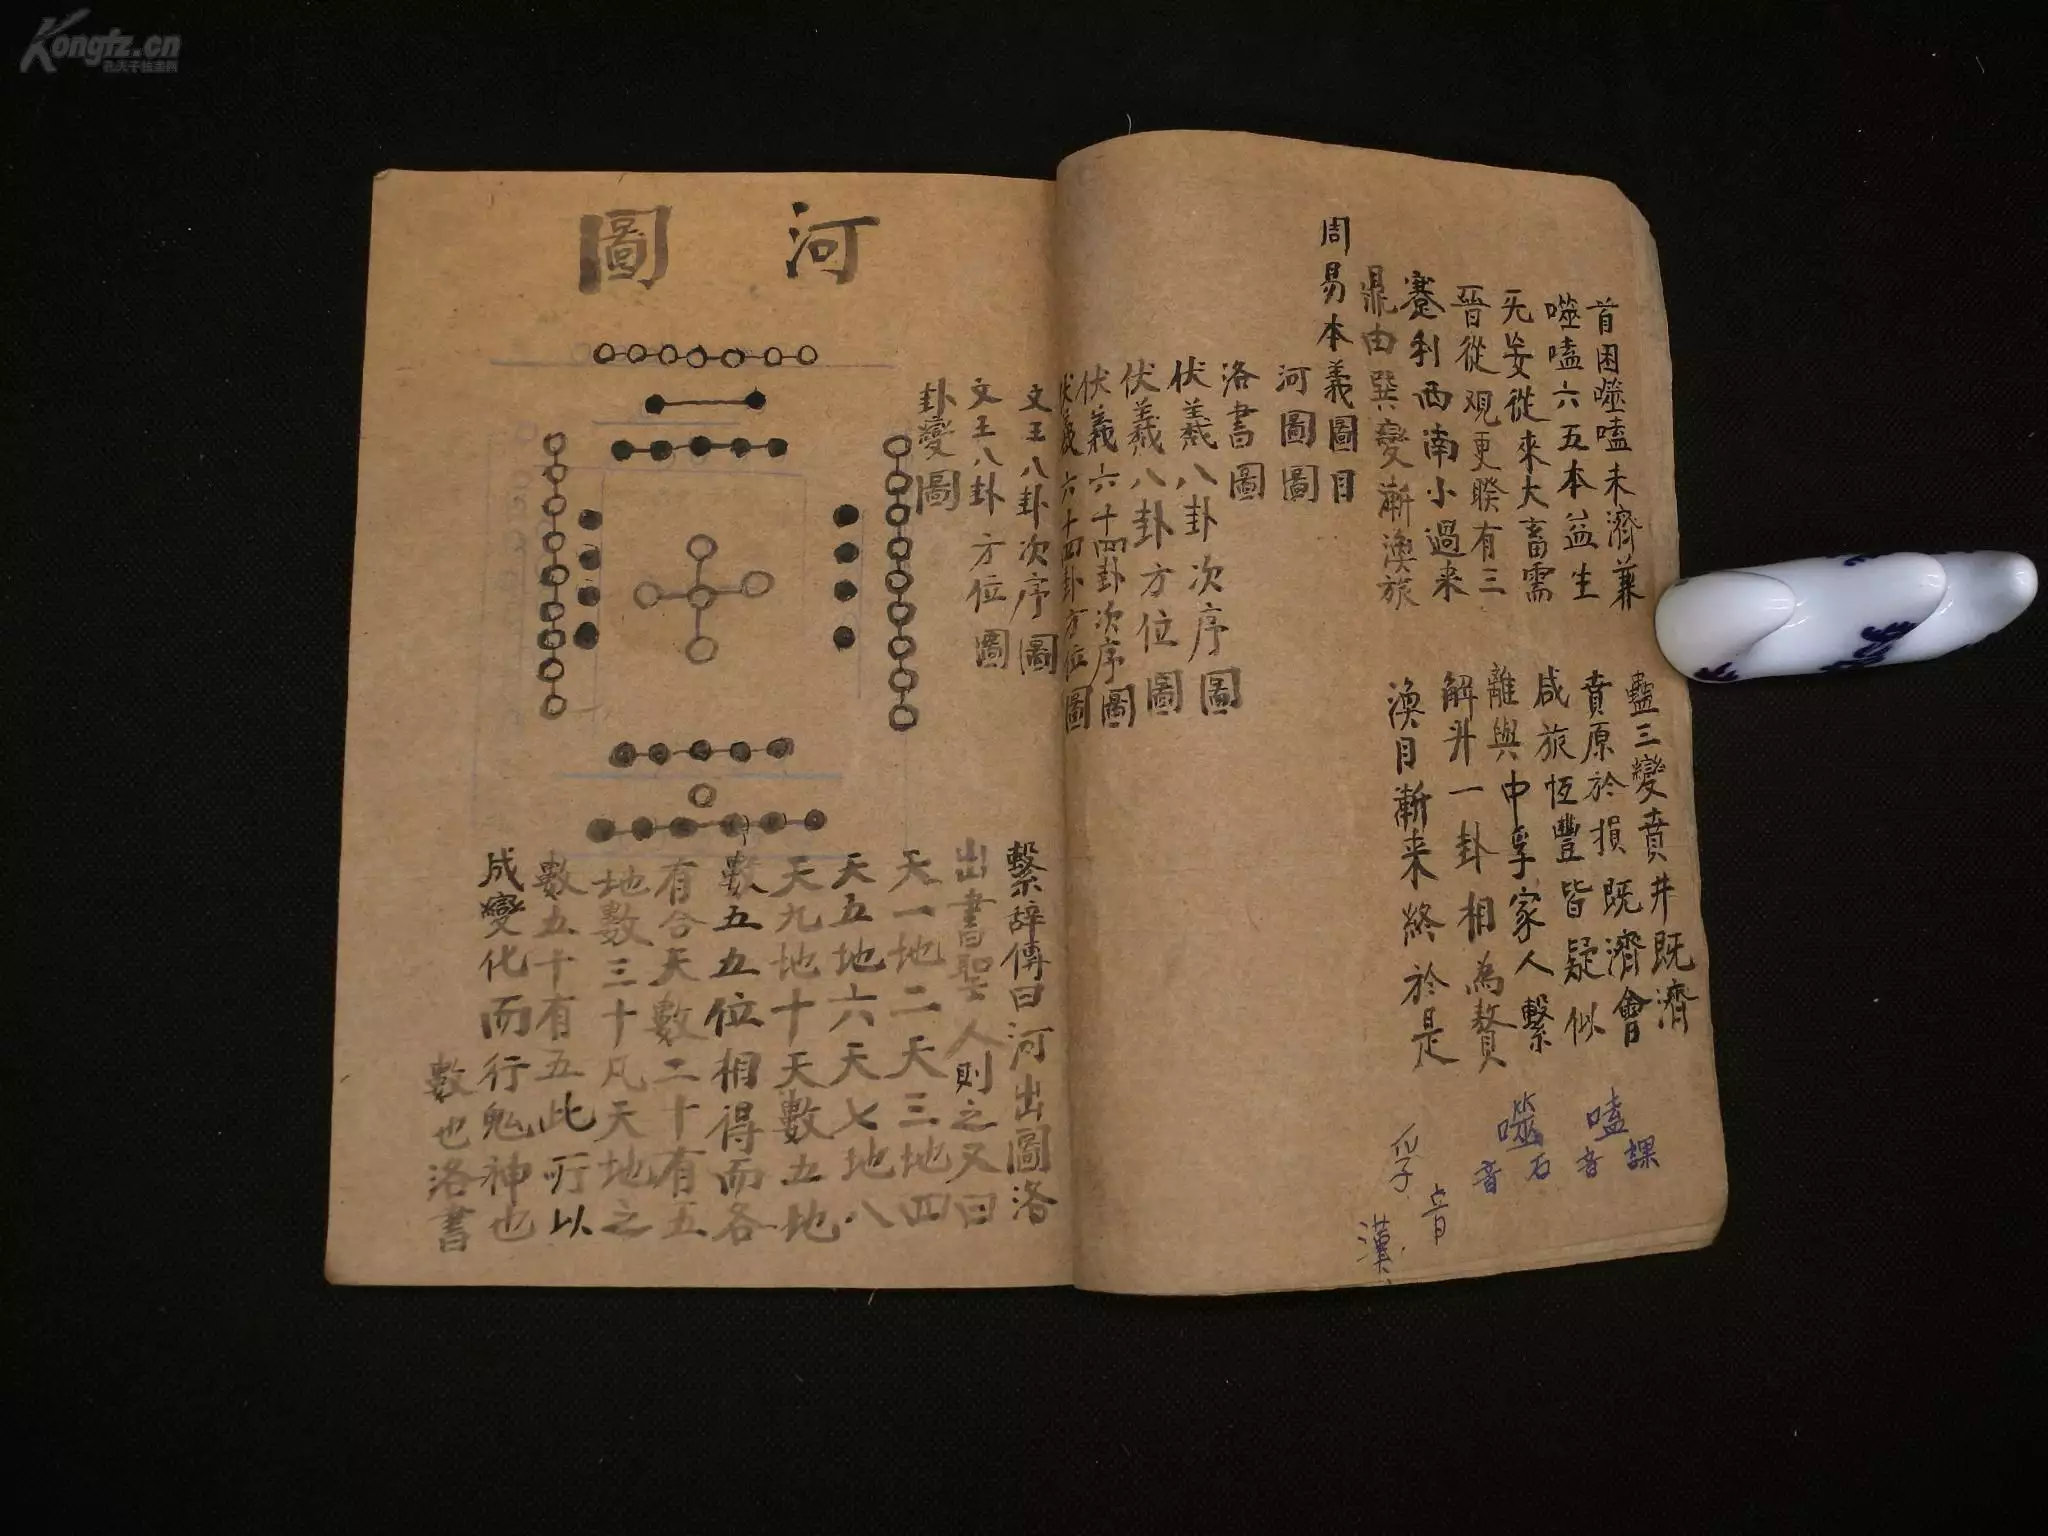 首困噬嗑未濟兼 蠱三變賁井既濟
噬嗑六五本益生 賁原於損既濟會
无妄從來大畜需 咸旅恆豐皆疑似
晉從观更睽有三 離與中孚家人繫
蹇利西南小過来 解升一卦相為贅
鼎由巽變漸渙旅 渙目漸来終於是
嗑音課
噬音石
孚音
漢
周易本義圖目
河圖圖
洛書圖
伏羲八卦次序圖
伏羲八卦方位圖
伏羲六十四卦次序圖
伏羲六十四卦方位圖
文王八卦次序圖
文王八卦方位圖
卦變圖
河圖
繫辭傳曰河出圖洛
出書聖人則之又曰
天一地二天三地四
天五地六天七地八
天九地十天數五地
數五五位相得而各
有合天數二十有五
地數三十凡天地之
數五十有五此所以
成變化而行鬼神也
數也洛書
Kongfz.cn